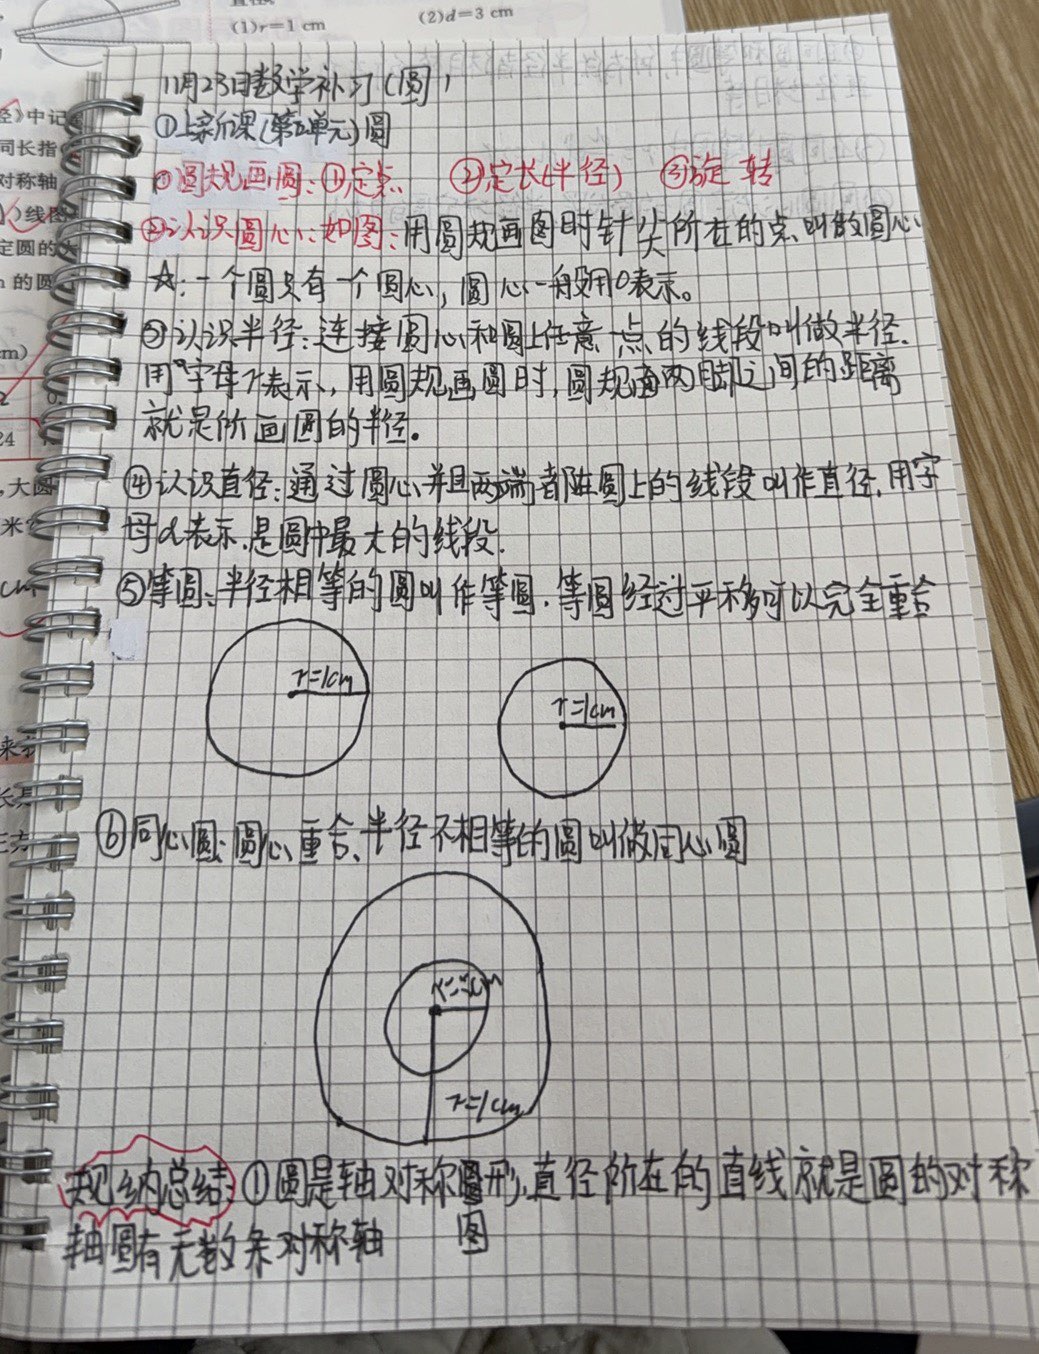 (1)r=1 cm
(2)d=3 cm
11月23日数学补习(圆)
①上新课(第五单元)圆
①圆规画圆:①定点 ②定长(半径) ③旋转
②认识圆心:如图:用圆规画图时针尖所在的点叫做圆心
☆:一个圆只有一个圆心,圆心一般用O表示。
③认识半径:连接圆心和圆上任意一点的线段叫做半径.
用字母r表示,用圆规画圆时,圆规两脚之间的距离
就是所画圆的半径。
④认识直径:通过圆心并且两端都在圆上的线段叫作直径.用字
母d表示.是圆中最大的线段.
⑤等圆:半径相等的圆叫作等圆.等圆经过平移可以完全重合
r=1cm
r=1cm
⑥同心圆:圆心重合、半径不相等的圆叫做同心圆
r=1cm
规纳总结:①圆是轴对称图形,直径所在的直线就是圆的对称
轴圆有无数条对称轴 图
中记
同长指
对称轴
线图
定圆的大
的圆
cm)
24
,大圆
米
cm
来
长